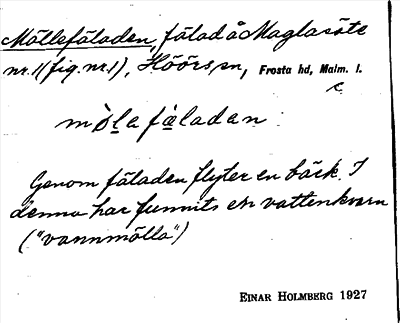 Möllefäladen, fälad å Maglasäte
nr. 1 (fig. nr. 1), Höörs sn, Frosta hd, Malm. l.
c.
möl̲a fa̲ladan
Genom fäladen flyter en bäck. I
denna har funnits en vattenkvarn
("vannmölla")
EINAR HOLMBERG 1927